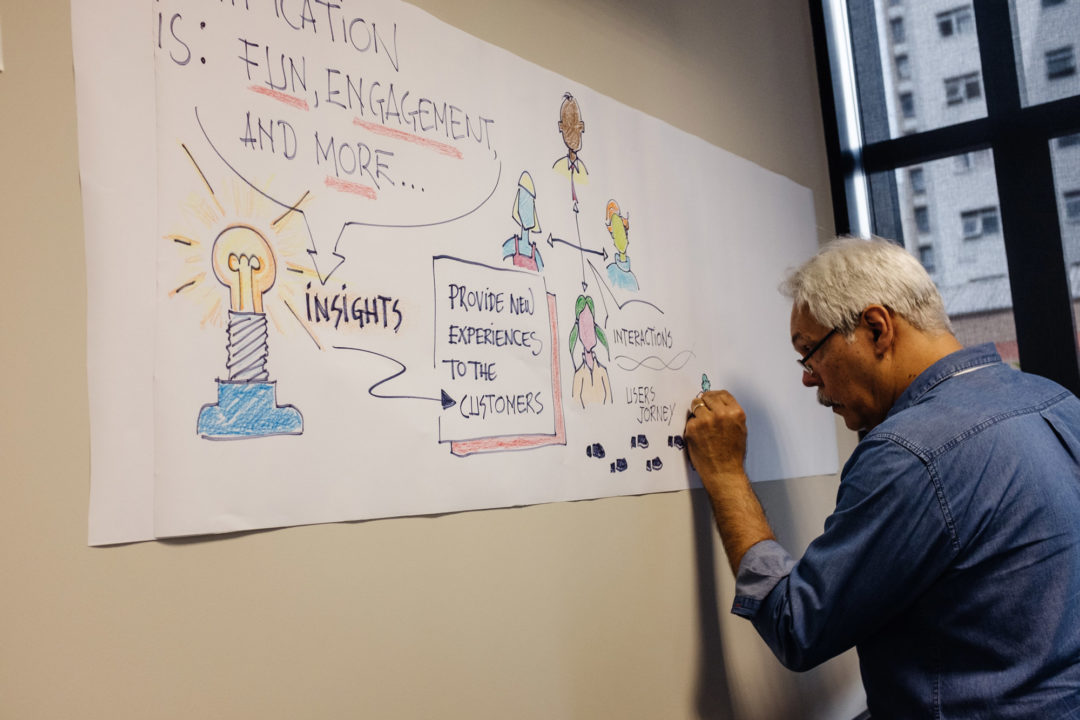 IS:
FUN, ENGAGEMENT,
AND MORE...
INSIGHTS
PROVIDE NEW
EXPERIENCES
TO THE
CUSTOMERS
INTERACTIONS
USERS
JORNEY